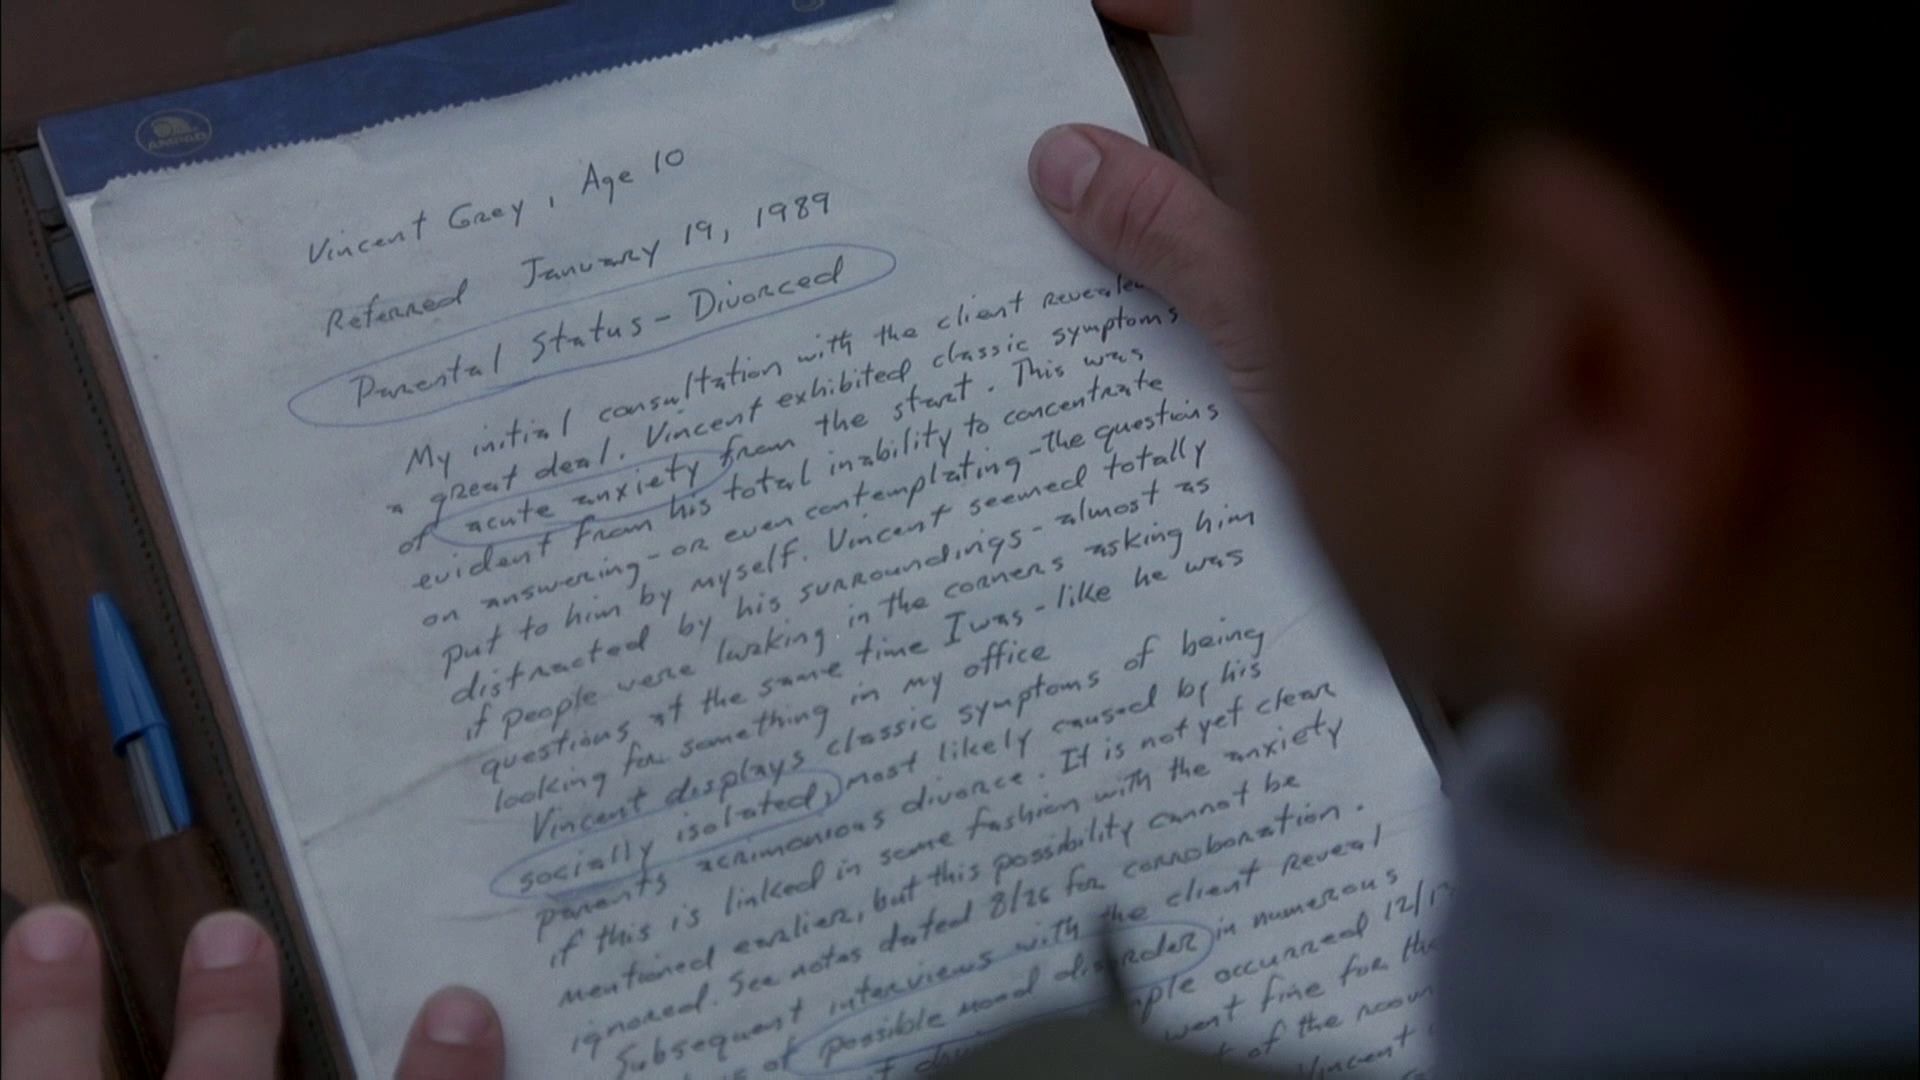 AMPAD
Vincent Grey, Age 10
Referred January 19, 1989
Parental Status - Divorced
My initial consultation with the client
a great deal. Vincent exhibited classic symptoms
of acute anxiety from the start. This was
evident from his total inability to concentrate
on answering - or even contemplating - the questions
put to him by myself. Vincent seemed totally
distracted by his surroundings - almost as
if people were lurking in the corners asking him
questions at the same time I was - like he was
looking for something in my office
Vincent displays classic symptoms of being
socially isolated, most likely caused by his
parents acrimonious divorce. It is not yet clear
if this is linked in some fashion with the anxiety
mentioned earlier, but this possibility cannot be
ignored. See notes dated 8/26 for corroboration.
Subsequent interviews with the client reveal
of possible mood disorder in numerous
occurred
went fine for the
of the
Vincent